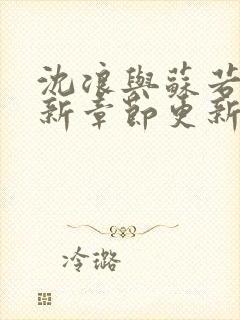 沈浪與蘇若
新章節更新
冷璐